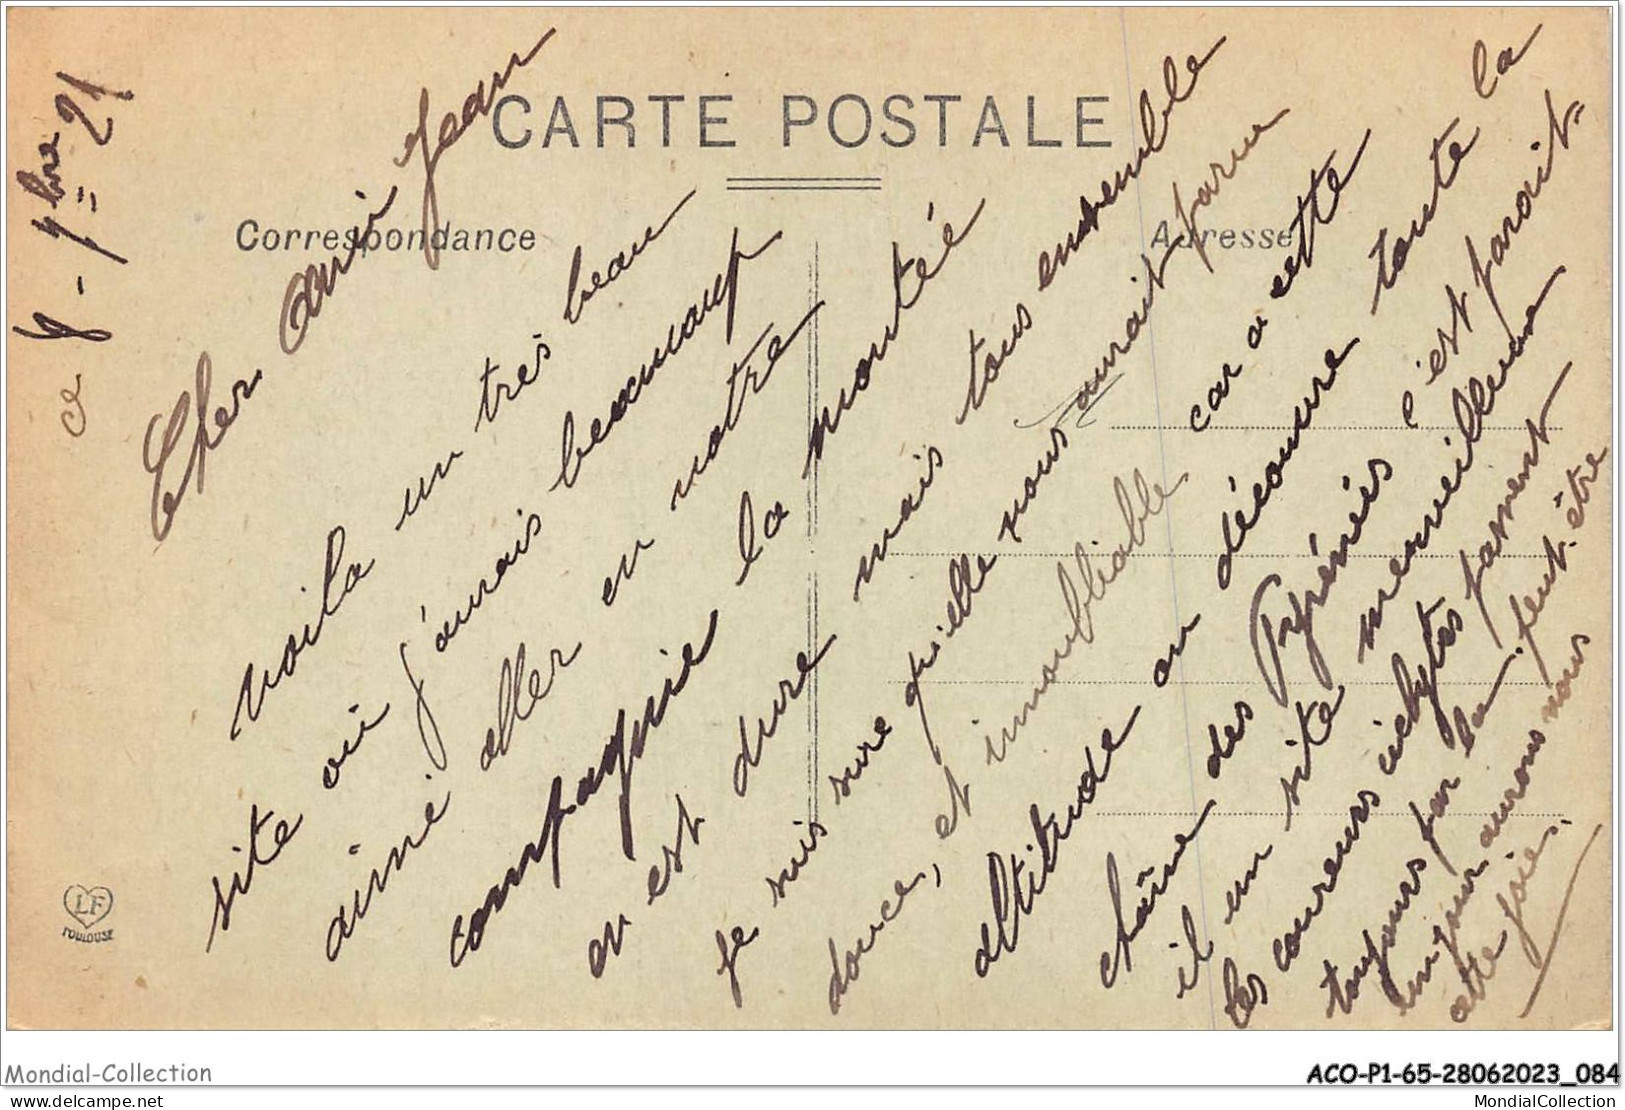 CARTE POSTALE
Correspondance
Adresse
ce 8 - 7bre 21
Cher ami Jean
voila un très beau
site oui j'aurais beaucoup
aimé aller en votre
compagnie la montéé
en est dure mais tous ensemble
je suis sure qu'elle nous aurait parue
douce, et inoubliable car a cette
altitude on découvre toute la
chaîne des Pyrénéés c'est paroit-
il un site merveilleux
les coureurs cichytes passent
toujours par la. peut.être
un jour aurons nous
cette joie.
LF
TOULOUSE
Mondial-Collection
ACO-P1-65-28062023_084
delcampe.net
MondialCollection